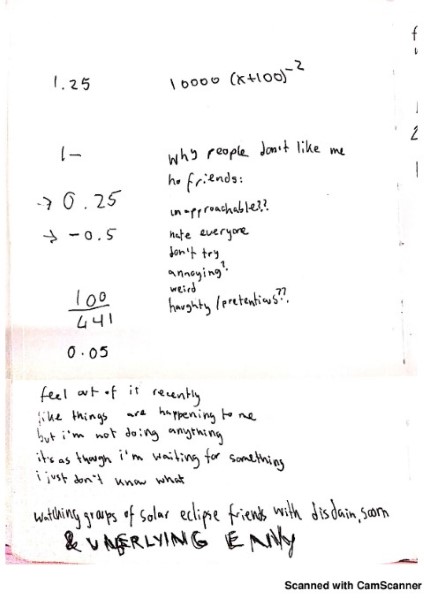 1.25
10000 (x+100)⁻²
1-
→ 0.25
→ -0.5
100
441
0.05
why people don't like me
no friends:
unapproachable??
hate everyone
don't try
annoying?
weird
haughty/pretentious??
feel out of it recently
like things are happening to me
but i'm not doing anything
it's as though i'm waiting for something
i just don't know what
watching groups of solar eclipse friends with disdain, scorn
& UNDERLYING ENVY
Scanned with CamScanner